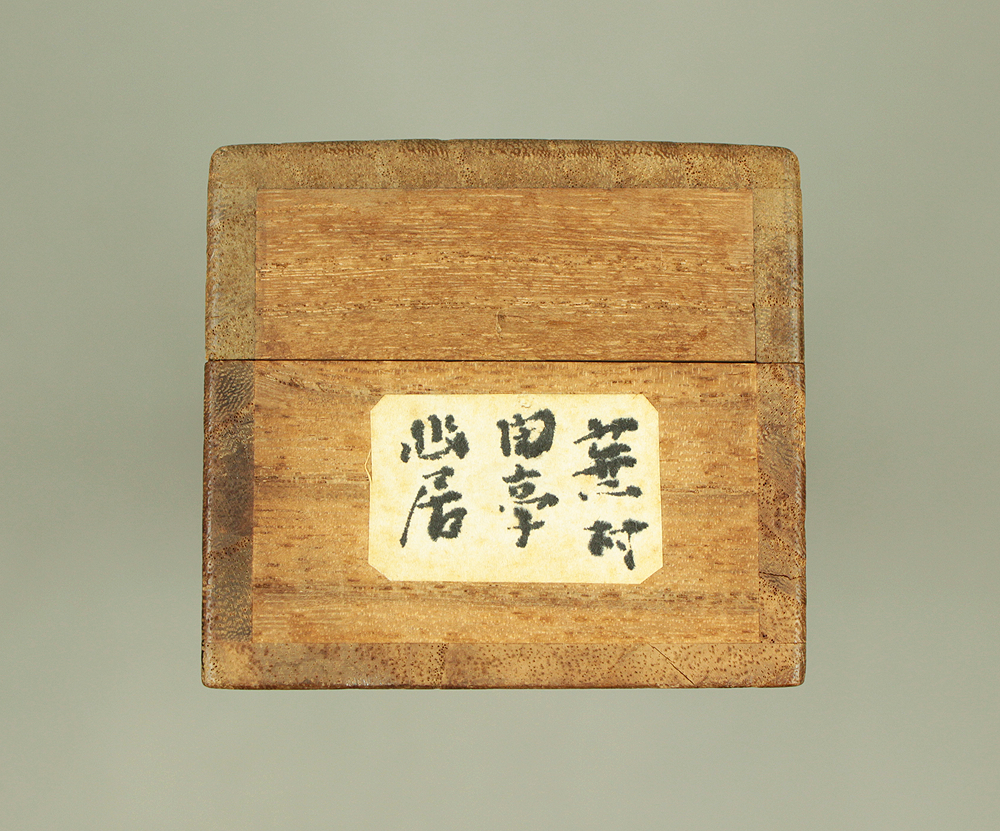 蕪村
田亭
幽居